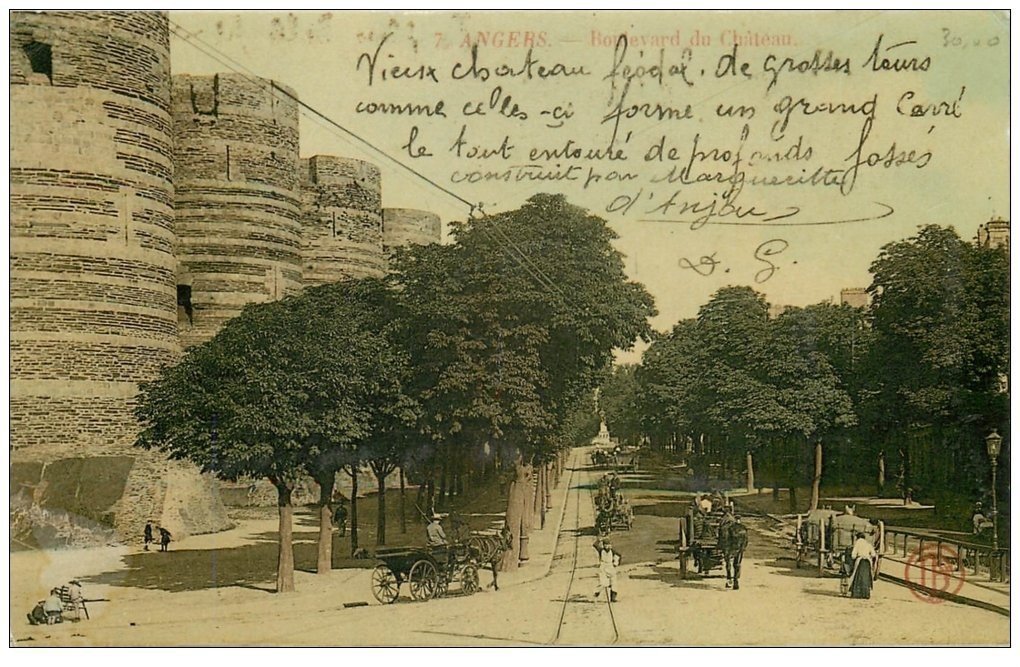 7. ANGERS. — Boulevard du Château.
30,00
Vieux chateau féodal, de grosses tours
comme celles-çi forme un grand Carré
le tout entouré de profonds fossés
construit par Margueritte
d'Anjou
D. G.
TB